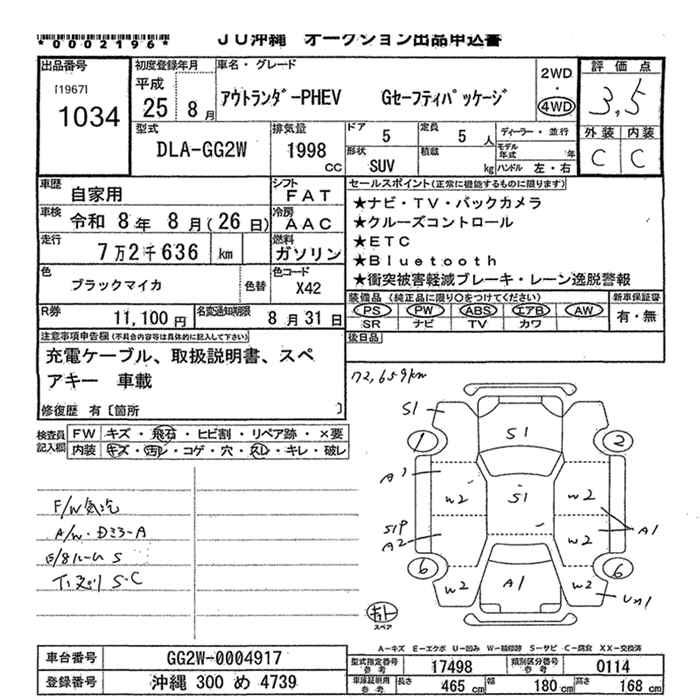 *0002196*
JU沖縄 オークション出品申込書
出品番号
[1967]
1034
初度登録年月
平成
25年 8月
車名・グレード
アウトランダーPHEV Gセーフティパッケージ
2WD
・
4WD
評価点
3,5
外装 内装
C C
型式
DLA-GG2W
排気量
1998
CC
ドア 5
定員 5人
形状 SUV
積載 kg
ディーラー・並行
モデル年式 年
ハンドル 左・右
車歴
自家用
シフト
FAT
車検
令和 8年 8月(26日)
冷房
AAC
走行
7万2千636 km
燃料
ガソリン
色
ブラックマイカ
色替
色コード
X42
R券
11,100円
名変通知期限
8月31日
セールスポイント(正常に機能するものに限ります)
★ナビ・TV・バックカメラ
★クルーズコントロール
★ETC
★Bluetooth
★衝突被害軽減ブレーキ・レーン逸脱警報
装備品(純正品に限り○をつけてください)
PS PW ABS エアB AW
SR ナビ TV カワ
新車保証書
有・無
後日品
注意事項申告欄(不具合内容等は具体的に記入して下さい)
充電ケーブル、取扱説明書、スペ
アキー 車載
修復歴 有〔箇所 〕
検査員
記入欄
FW キズ・飛石・ヒビ割・リペア跡・×要
内装 キズ・汚レ・コゲ・穴・スレ・キレ・破レ
F/W気泡
A/W・Dミラ-A
S・C
72,659km
S1
1
2
S1
A1
W2
S1
W2
S1P
A2
W2
W2
A1
6
6
W2
A1
W2
U1
スペア
A-キズ E-エクボ U-凹み W-補修跡 S-サビ C-腐食 XX-交換済
車台番号 GG2W-0004917
登録番号 沖縄 300 め 4739
型式指定番号
参考
17498
類別区分番号
参考
0114
車庫証明用
参考
長さ 465cm 幅 180cm 高さ 168cm